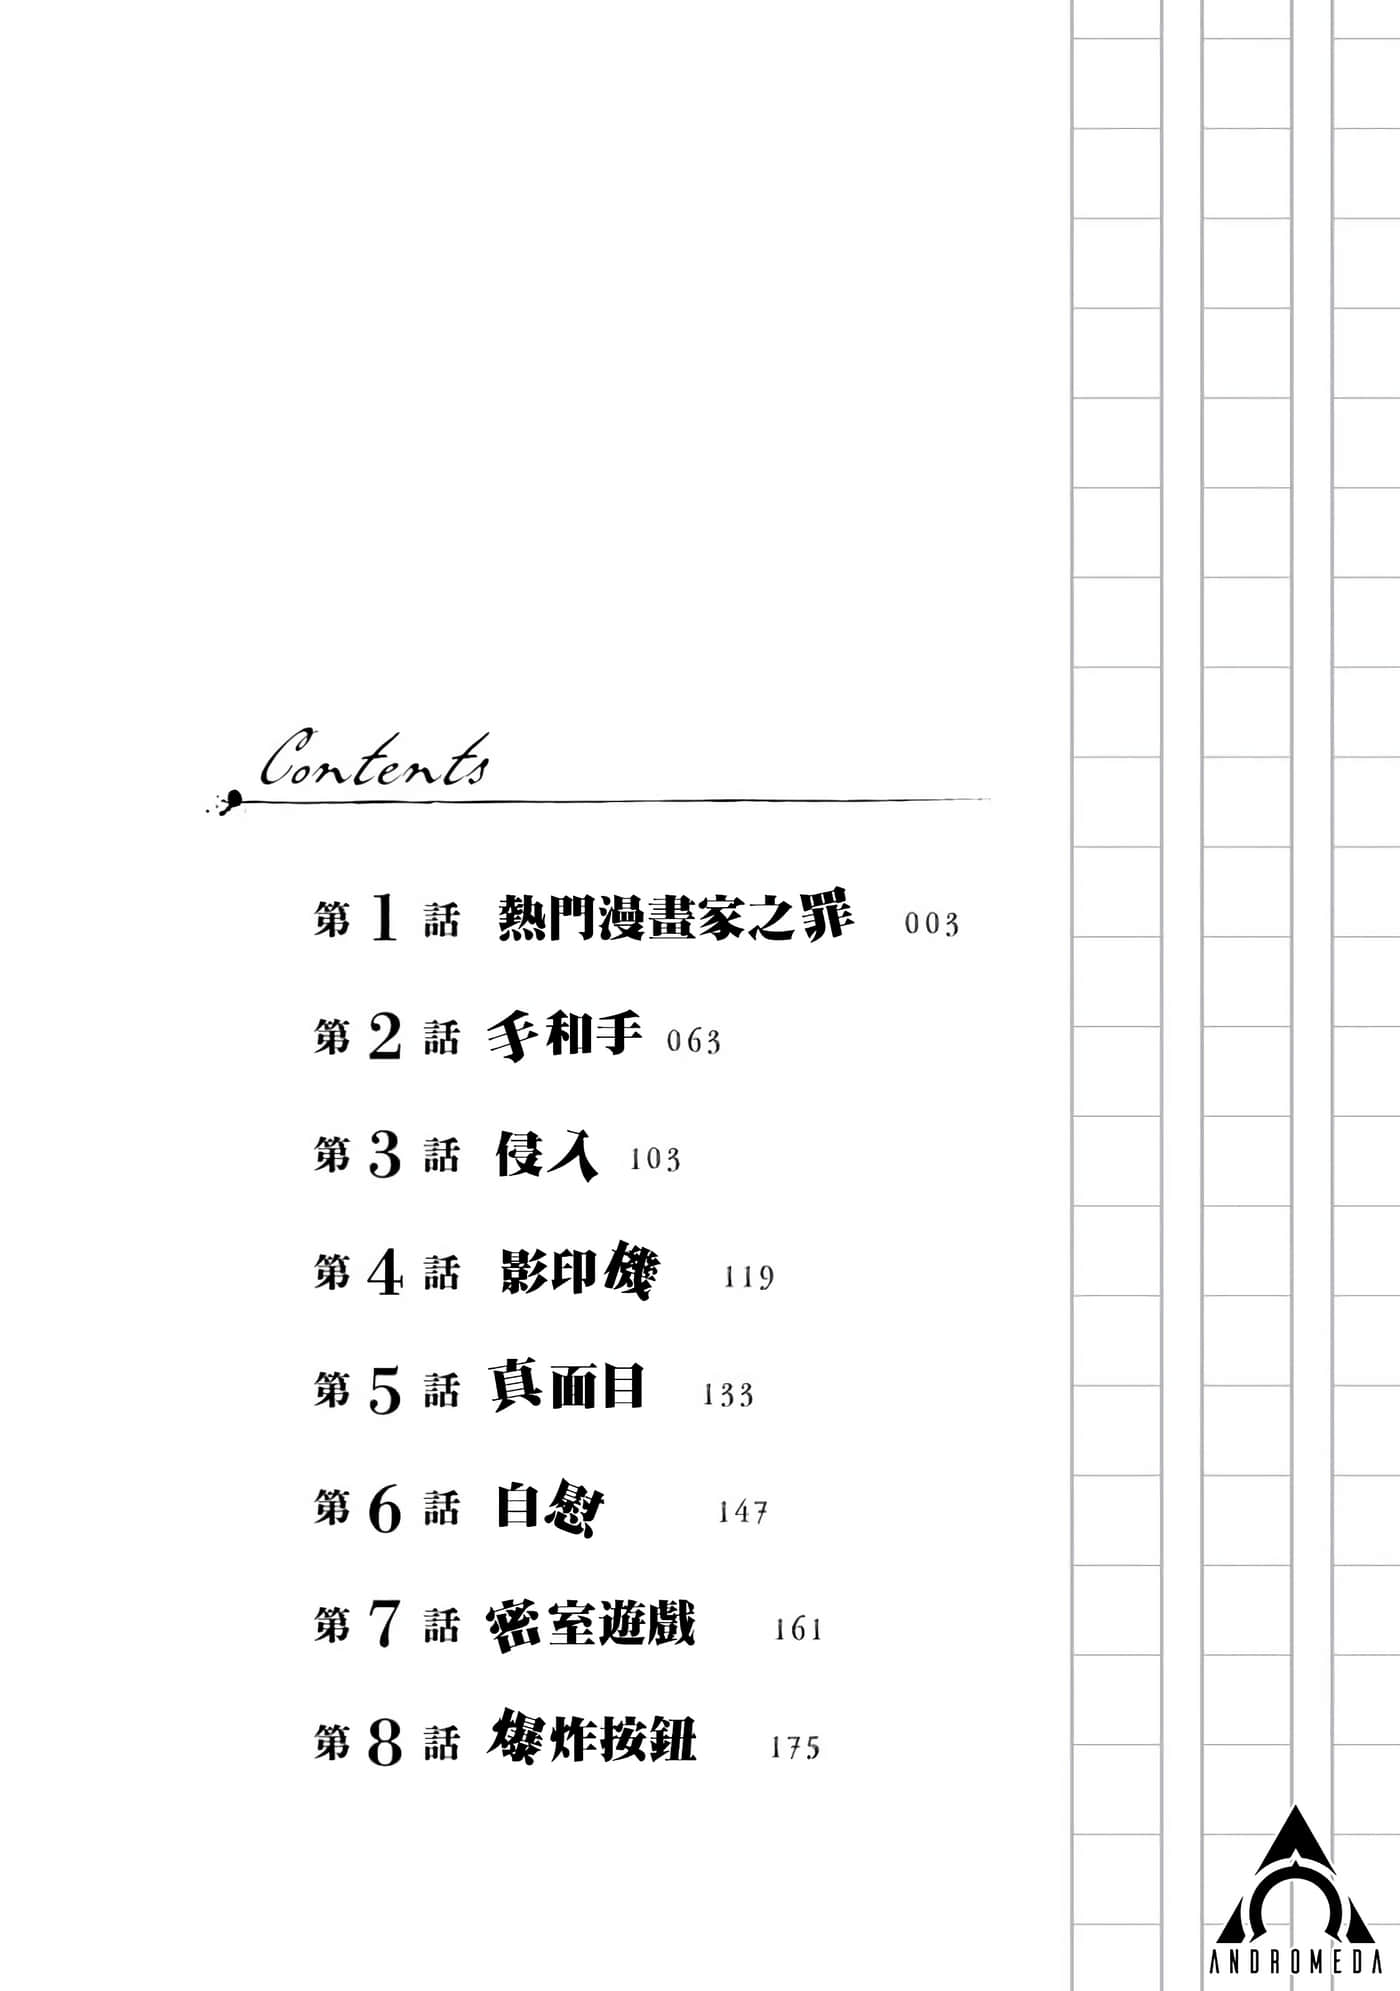 Contents
第1話 熱門漫畫家之罪 003
第2話 手和手 063
第3話 侵入 103
第4話 影印機 119
第5話 真面目 133
第6話 自慰 147
第7話 密室遊戲 161
第8話 爆炸按鈕 175
ANDROMEDA